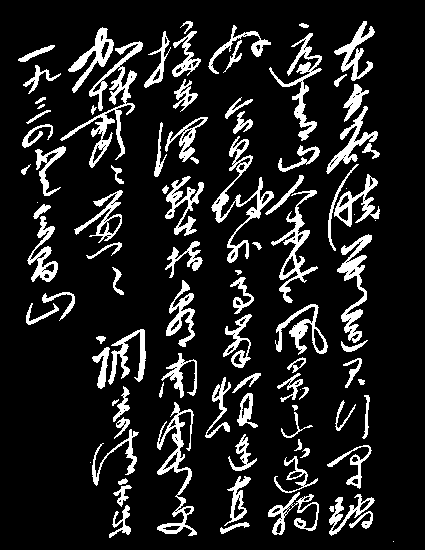 东方欲晓莫道君行早踏
遍青山人未老風景这邊独
好会昌城外高峯顛连直
接东溟戰士指看南粤更
加欝々葱々調寄清平乐
一九三四登会昌山